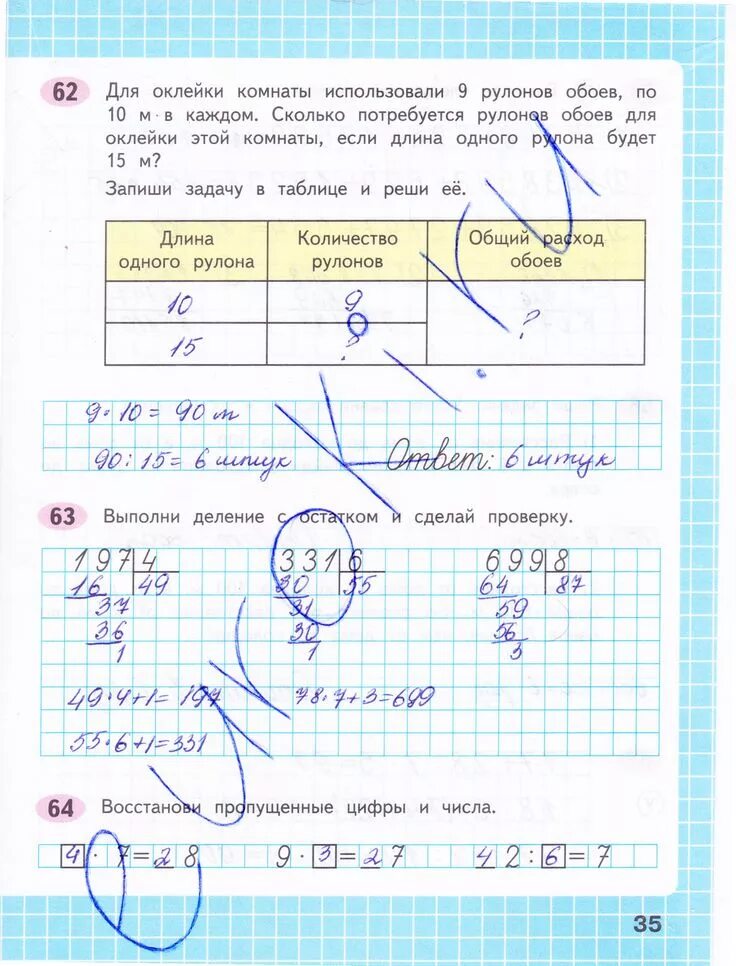 62 Для оклейки комнаты использовали 9 рулонов обоев, по
10 м в каждом. Сколько потребуется рулонов обоев для
оклейки этой комнаты, если длина одного рулона будет
15 м?
Запиши задачу в таблице и реши её.
Длина одного рулона Количество рулонов Общий расход обоев
10 9 ?
15 ?
9·10=90 м
90:15=6 штук Ответ: 6 штук
63 Выполни деление с остатком и сделай проверку.
197 4 331 6 699 8
16 49 30 55 64 87
37 31 59
36 30 56
1 1 3
49·4+1=197 78·7+3=699
55·6+1=331
64 Восстанови пропущенные цифры и числа.
4 · 7=28 9·3=27 42:6=7
35